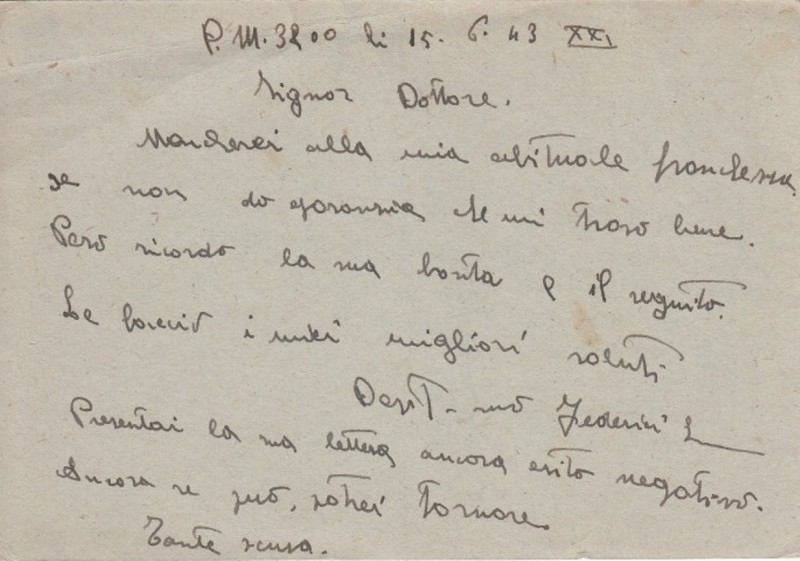 P.M. 3200 li 15. 6. 43 XXI
Signor Dottore.
Mancherei alla mia abituale franchezza
se non do garanzia che mi trovo bene.
Però ricordo la sua bontà e il seguito.
Le faccio i miei migliori saluti
Dev Suo Federici L
Presentai la sua lettera ancora esito negativo.
Ancora se può, potrei tornare.
Tante scusa.